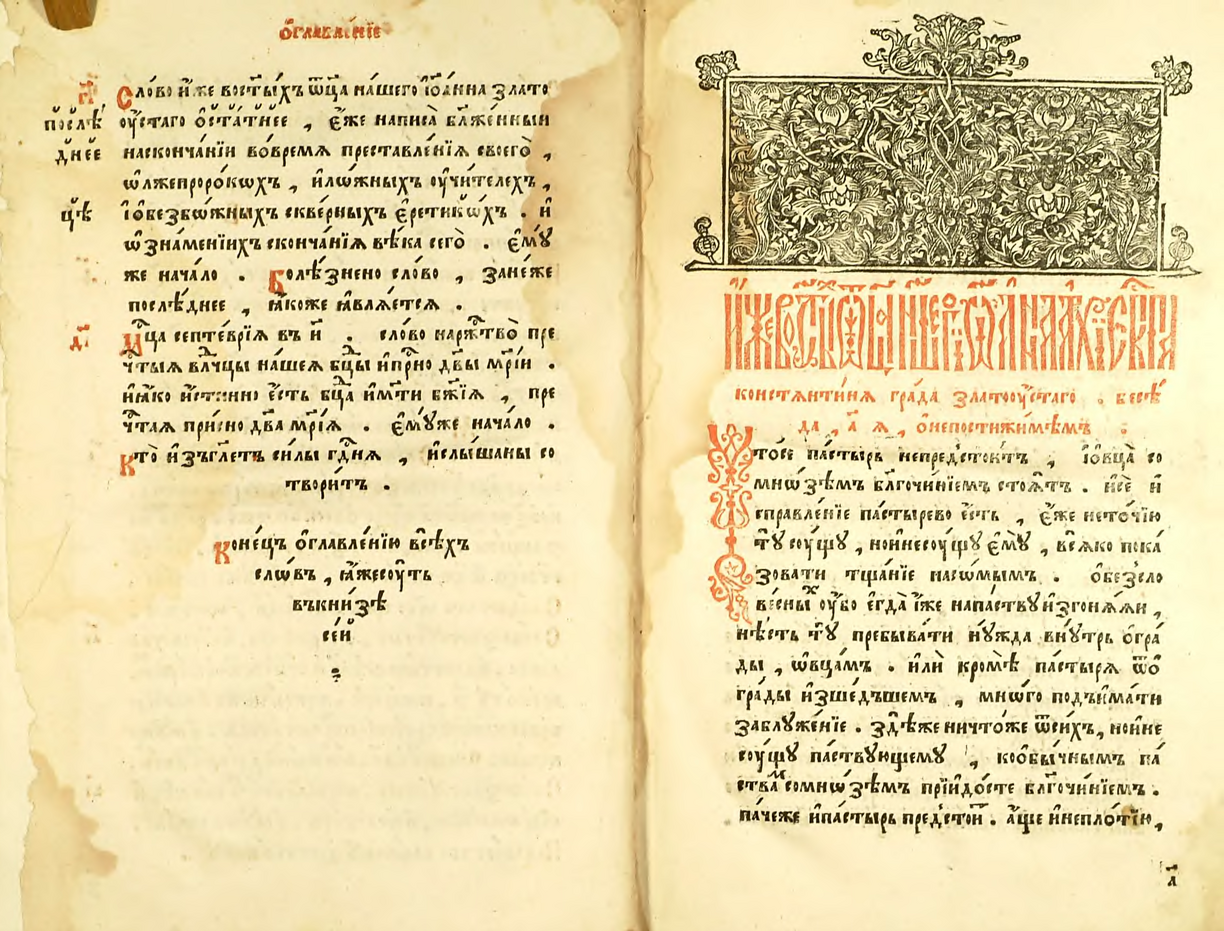 Ѡ҆главле́нїе
Сло́во и҆́же во ст҃ы́хъ ѿц҃а на́шего і҆ѡа́нна злато
ꙋ҆́стаго ѻ҆ста́тнее , є҆́же написа̀ бл҃же́нныи
на сконча́нїи во вре́мѧ преставле́нїѧ своегѡ̀ ,
ѡ҆ лжепроро́кѡхъ , и҆ ло́жныхъ ᲂу҆чи́телехъ ,
і҆ ѡ҆ безбо́жныхъ скве́рныхъ є҆ретикѡ́хъ . и҆
ѡ҆ зна́менїихъ сконча́нїѧ вѣ́ка сегѡ̀ . є҆мꙋ́
же нача́ло . Болѣ́знено сло́во , зане́же
послѣ́днее , ꙗ҆́коже ꙗ҆влѧ́етсѧ .
послѣ́
днее
цѣ
Мц҃а септе́врїѧ въ и҃ . сло́во на рж҃тво̀ пре
чⷭ҇тыѧ влⷣчцы на́шеѧ бц҃ы и҆ прⷭ҇но дв҃ы мр҃і́и .
и҆ ꙗ҆́ко и҆́стинно є҆́сть бц҃а и҆ мт҃и бж҃їѧ , пре
чⷭ҇таѧ при́сно дв҃а мр҃і́ѧ . є҆мꙋ́же нача́ло .
Кто̀ и҆зъгл҃етъ си́лы гдⷭ҇нѧ , и҆ слы́шаны со
твори́тъ .
Коне́цъ ѻ҆главле́нїю всѣ́хъ
сло́въ , ꙗ҆́же сꙋ́ть
въ кни́зѣ
се́й
И҆́же во ст҃ы́хъ ѿц҃а на́шегѡ і҆ѡа́нна а҆рхїепⷭ҇кпа
констѧнти́нѧ гра́да златоꙋ́стаго . бесѣ́
да , а҃ ѧ , ѡ҆ непостижи́мѣмъ .
Что̀ сѐ па́стырь не предстои́тъ , і҆ ѻ҆вца̀ со
мно́зѣмъ бл҃гочи́нїемъ стоѧ́тъ . и҆ сѐ и҆
справле́нїе па́стырево є҆́сть , є҆́же не то́чїю
тꙋ̀ сꙋ́щꙋ , но и҆ не сꙋ́щꙋ є҆мꙋ̀ , всѧ́ко пока
зовати тща́нїе пасо́мымъ . ѻ҆ безсло
ве́сныхъ ᲂу҆́бо є҆гда̀ и҆́же напа́ствꙋ и҆згонѧ́ѧи ,
нѣ́сть тꙋ̀ пребыва́ти нꙋ́жда внꙋ́трь ѻ҆гра́
ды , ѻ҆вца́мъ . и҆лѝ кромѣ̀ па́стырѧ ѿ ѻ҆
гра́ды и҆зше́дъшемъ , мно́го подъима́ти
заблꙋжде́нїе . здѣ́ же ничто́же ѿ си́хъ , но и҆ не
сꙋ́щꙋ па́ствꙋющемꙋ , ко ѻ҆бы́чнымъ па́
ствамъ со мно́зѣмъ прїидо́сте бл҃гочи́нїемъ .
па́че же и҆ па́стырь предстои́тъ . а҆́ще и҆ не пло́тїю ,
а҃